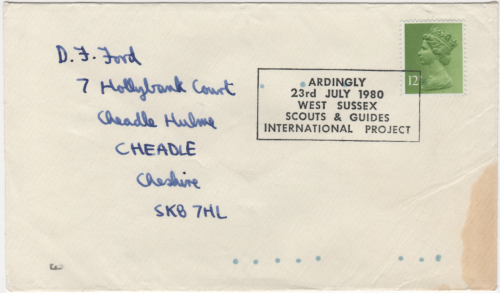 D. F. Ford
7 Hollybank Court
Cheadle Hulme
CHEADLE
Cheshire
SK8 7HL
ARDINGLY
23rd JULY 1980
WEST SUSSEX
SCOUTS & GUIDES
INTERNATIONAL PROJECT
12